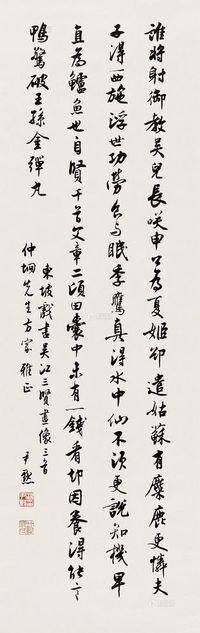 誰將射御教吳兒長咲申公為夏姬却遣姑蘇有麋鹿更憐夫
子得西施浮世功勞食與眠季鷹真得水中仙不須更說知機早
直為鱸魚也自賢千首文章二頃田囊中未有一錢看却因養得能言
鴨驚破王孫金彈丸
東坡戲書吳江三賢畫像三首
仲坰先生方家雅正 尹默